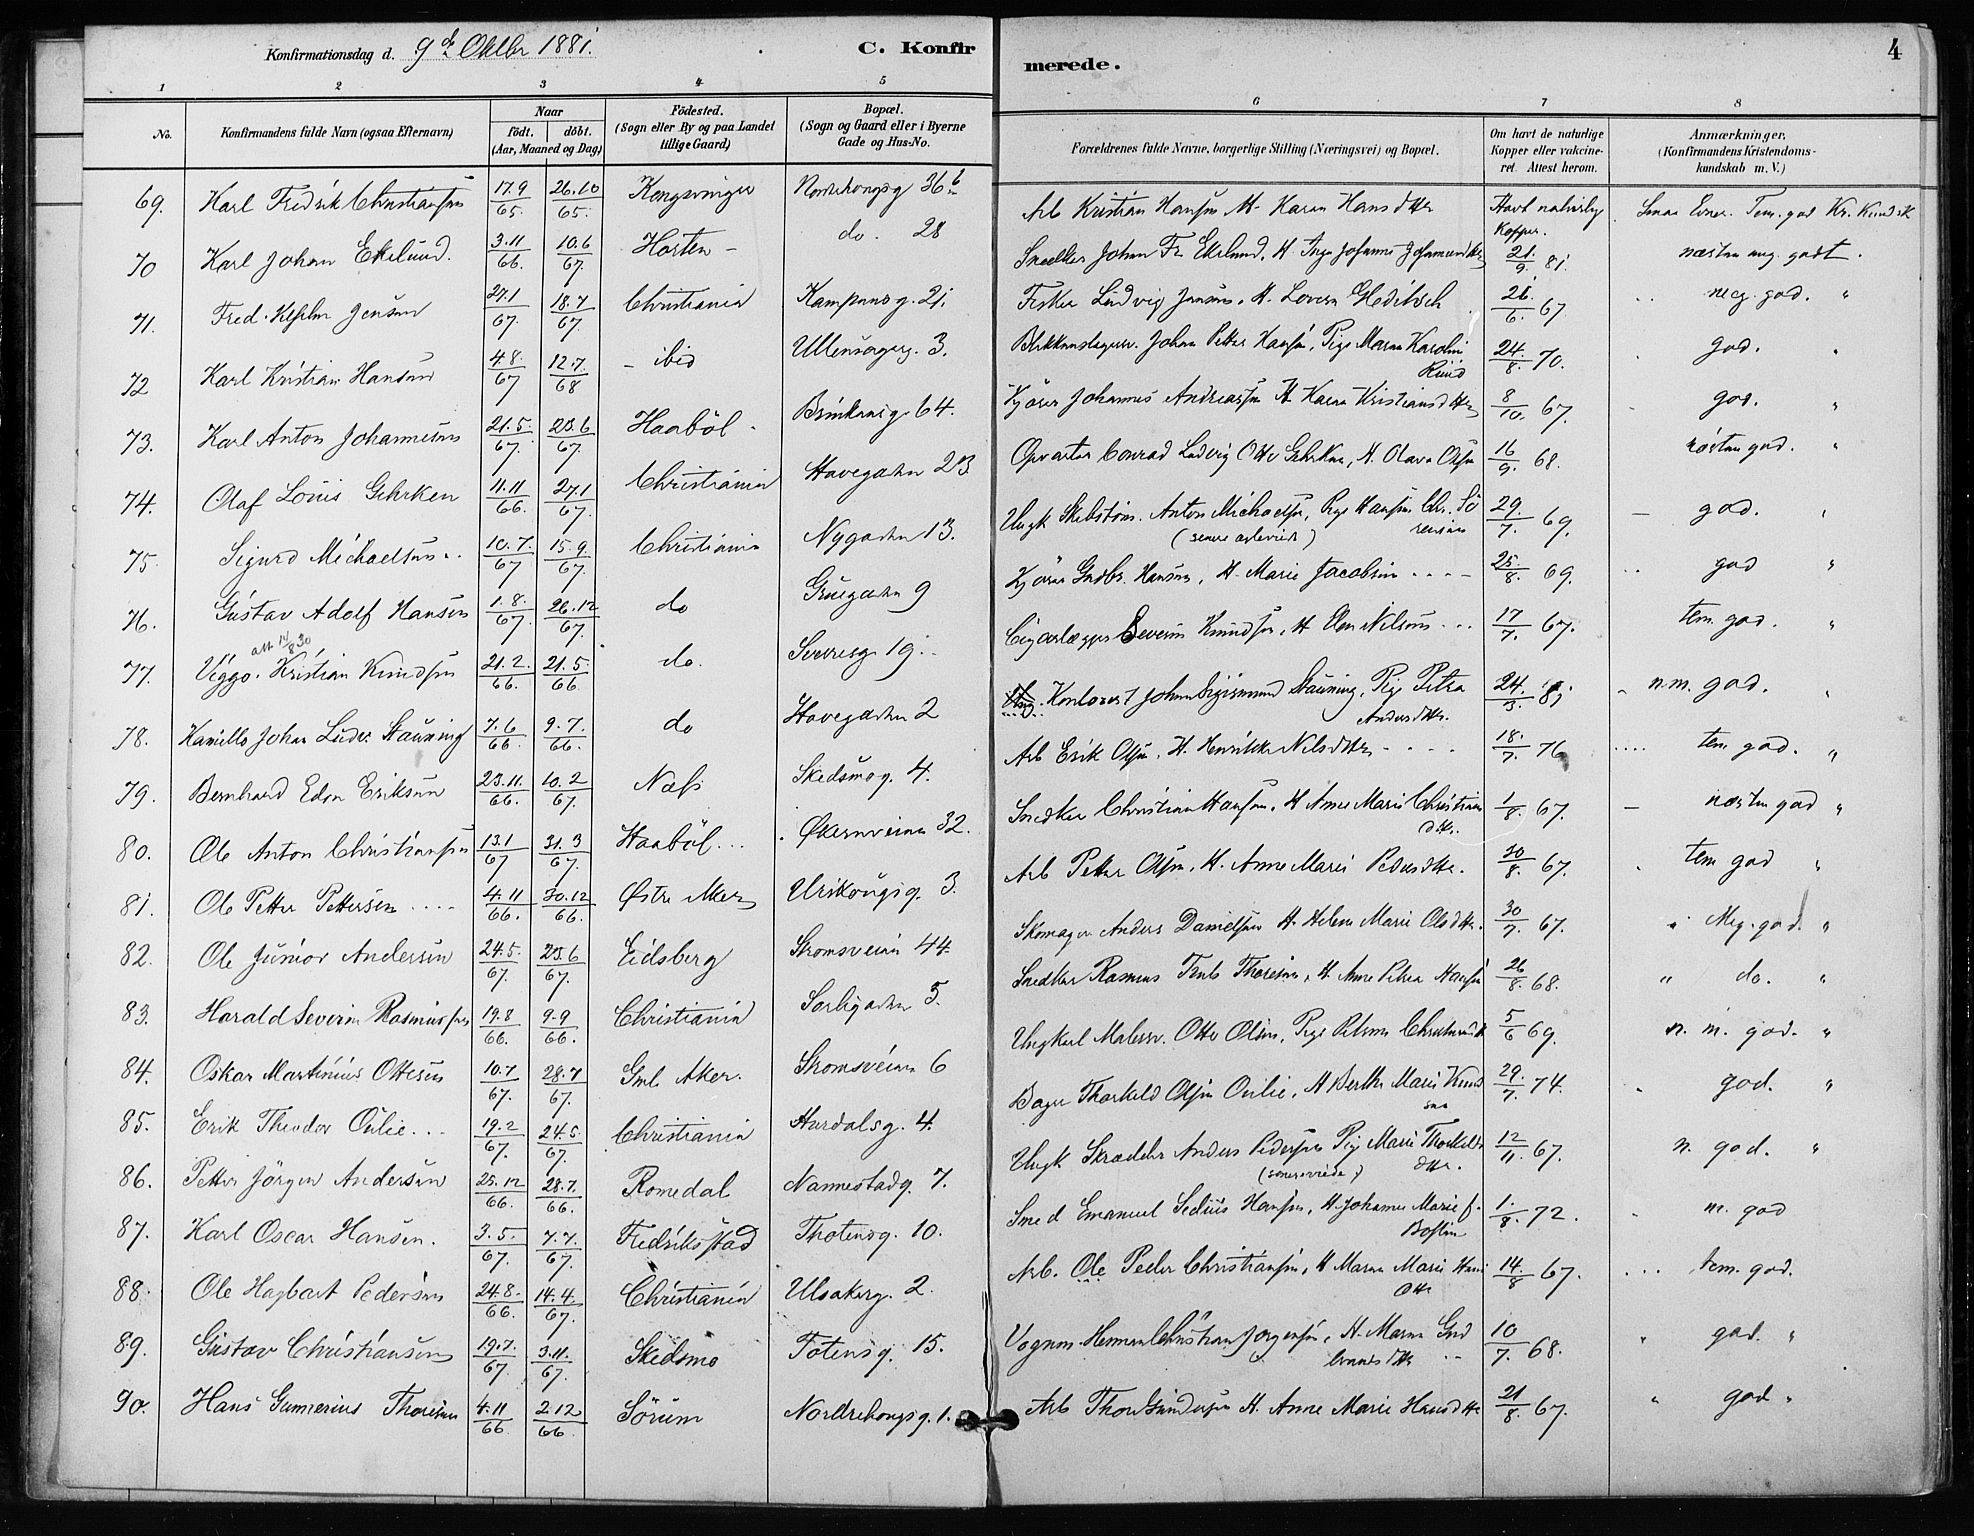 Konfirmationsdag d. 9de Oktbr 1881.
C. Konfirmerede.
4
1 2 3 4 5 6 7 8
No.
Konfirmandens fulde Navn (ogsaa Efternavn)
Naar
födt. döbt.
(Aar, Maaned og Dag)
Födested.
(Sogn eller By og paa Landet tillige Gaard)
Bopæl.
(Sogn og Gaard eller i Byerne Gade og Hus-No.
Forældrenes fulde Navne, borgerlige Stilling (Næringsvei) og Bopæl.
Om havt de naturlige Kopper eller vakcineret. Attest herom.
Anmærkninger.
(Konfirmandens Kristendomskundskab m. V.)
69. Karl Fredrik Christiansen 17.9/65. 26.10/65. Kongsvinger 36b Arb Kristian Hansen H. Karen Hansdtter Havt naturlig Kopper. Smaa Evner. Tem. god Kr. Kundsk
70 Karl Johan Ekelund. 3.11/66. 10.6/67. Horten – do. 28 Snedker Johan Fr. Ekelund, H. Inga Johanne 21./9. 81. næsten meg. godt.
71. Fred. Vilhelm Jensen 27.1/67. 18.7/67. Christiania Kampensg. 21. Fisker Ludvig Jensen, H. Lovisa 21/6. 67 meg. god. "
72 Karl Kristian Hansen 4.8./67 12.7./68 – ibid Ullensagerg. 3. Johan Petter Hansen, Pige Maren Karolin 24./8. 70. god. "
73. Karl Anton Johannesen 21.5./67. 23.6/67. Haaböl – 64. Kjörer Johannes Andreassen H. Karen Kristiansdtter 8/10. 67. god. "
74. Olaf Louis Gehrken 11.11/66. 27.1/67. Christiania Havegaden 23. Opvarter Conrad Ludvig Otto Gehrken, H. Olava Olsen 16/9. 68. næsten god. "
75. Sigurd Michaelsen 10.7./67 15.9./67. Christiania Nygaden 13. Ungk Anton Michaelsen, Pige Hansine Chr. Sörensen 29/7. 69. – god. "
76. Gustav Adolf Hansen 1.8./67. 26.12/67. do Gruegaden 9 Kjörer Gudbr. Hansen, H. Marie Jacobsen 25./8. 69. god "
att 14/8 30
77. Viggo Kristian Knudsen 21.2./66. 21.5./66 do. 19. Cigarlægger Severin Knudsen, H. Elen Nilsen 17/7. 67. tem. god. "
78. Kamillo Johan Ludv. Stauning 7.6/66. 9.7./66. do Havegaden 2 Kontorist Johan Sigismund Stauning, Pige Petra Andersdtter. 24./3. 81 n.m. god. "
79. Bernhard Edv. Eriksen 23.11./66. 10.2/67. Næs Skedsmog. 4. Arb Erik Olsen, H. Henrikke Nilsdtter 18./7. 76 tem god. "
80. Ole Anton Christiansen 13.1/67 31.3/67. Haaböl Økernveien 32. Snedker Christian Hansen, H Anne Marie Christiansdtter. 1/8. 67. – næsten god "
81. Ole Petter Pettersen 4.11/66. 30.12/66. Østre Aker 3. Arb Petter Olsen, H. Anne Marie Pedersdtter. 30/8. 67. tem god "
82. Ole Junior Andersen 24.5./67. 23.6/67. Eidsberg Strømsveien 44. Skomager Anders Danielsen H. Helene Marie Olsdtter. 30/7. 67. Meg. god. "
83. Harald Severin Rasmussen 19.8/66. 9.9/66. Christiania Sorligaden 5. Snedker Rasmus Thoresen, H. Anne Petrea Hansen 26/8. 68. " do. "
84. Oskar Martinius Ottesen 10.7/67. 28.7/67. Gml Aker. Strømsveien 6 Ungkarl Malersv. Otto Olsen, Pige 5/6 69. n. m. god. "
85. Erik Theodor Ovlie 19.2/67. 24.5./67. Christiania Hurdalsg. 4. Bager Thorkeld Olsen Ovlie, H Berthe Marie Knudsen 29./7. 74. god. "
86. Petter Jörgen Andersen 25.12/66. 28.7./66. Romedal Nannestadg. 7. Ungk Skrædder Anders Pedersen Pige Marie Thorkelsdtter. 12/11. 67. n. god. "
87. Karl Oscar Hansen. 3.5./67. 7.7./67. Fredriksstad Thotensg. 10. Smed Emanuel Sedius Hansen, H. Johanne Marie f. 1./8. 72. m. god
88. Ole Hagbart Pedersen 24.8./66. 14.4./67. Christiania Ulsakerg. 2. Arb. Ole Peder Christiansen, H Maren Marie 14./8 67. tem. god.
89. Gustav Christiansen 19.7./67. 3.11./67. Skedsmo Totensg. 15. Vognm. Herman Christian Jorgensen, H. Maren Gudbrandsdtter 10/7. 68. " god. "
90. Hans Gunnerius Thoresen 4.11/66. 2.12/66. Sörum Nordrehougsg. 1. Arb Thor Gundersen H. Anne Marie Hansdtter 21/8. 67. " god "